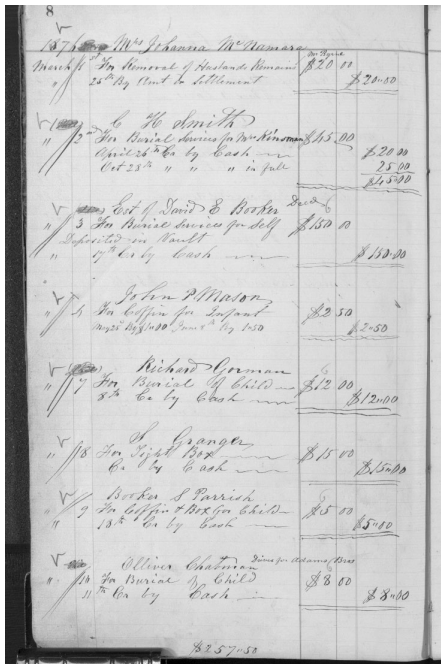 8
187 Mrs Johanna McNamara
March 1st For Removal of Husbands Remains $20 00
" 25th By Rent in Settlement $20"00
C H Smith
" 2nd For Burial Services for Mrs Kinsman $45,00
April 26th Cr by Cash $20 00
Oct 28th " " " in full 25 00
$45"00
Est of David E Booker Decd
" 3 For Burial Services for Self $150 00
Deposited in Vault
" 17th Cr by Cash $150"00
John P Mason
" 4 For Coffin for Infant $2 50
$2"50
Richard Gorman
" 7 For Burial of Child $12 00
8th Cr by Cash $12"00
S Granger
" 8 For Tight Box $15 00
Cr by Cash $15"00
Booker S Parrish
" 9 For Coffin & Box for Child $5 00
" 18th Cr by Cash $5"00
Olliver Chatman for Adams Bros
" 10 For Burial of Child $8 00
11th Cr by Cash $8"00
$257"50